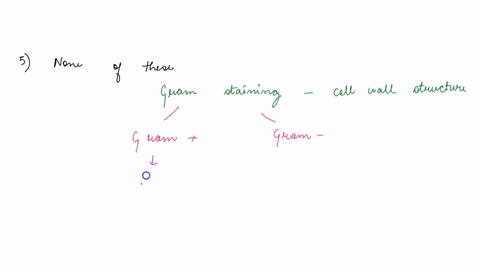 5) None of these
Gram staining - cell wall structure
Gram + Gram -